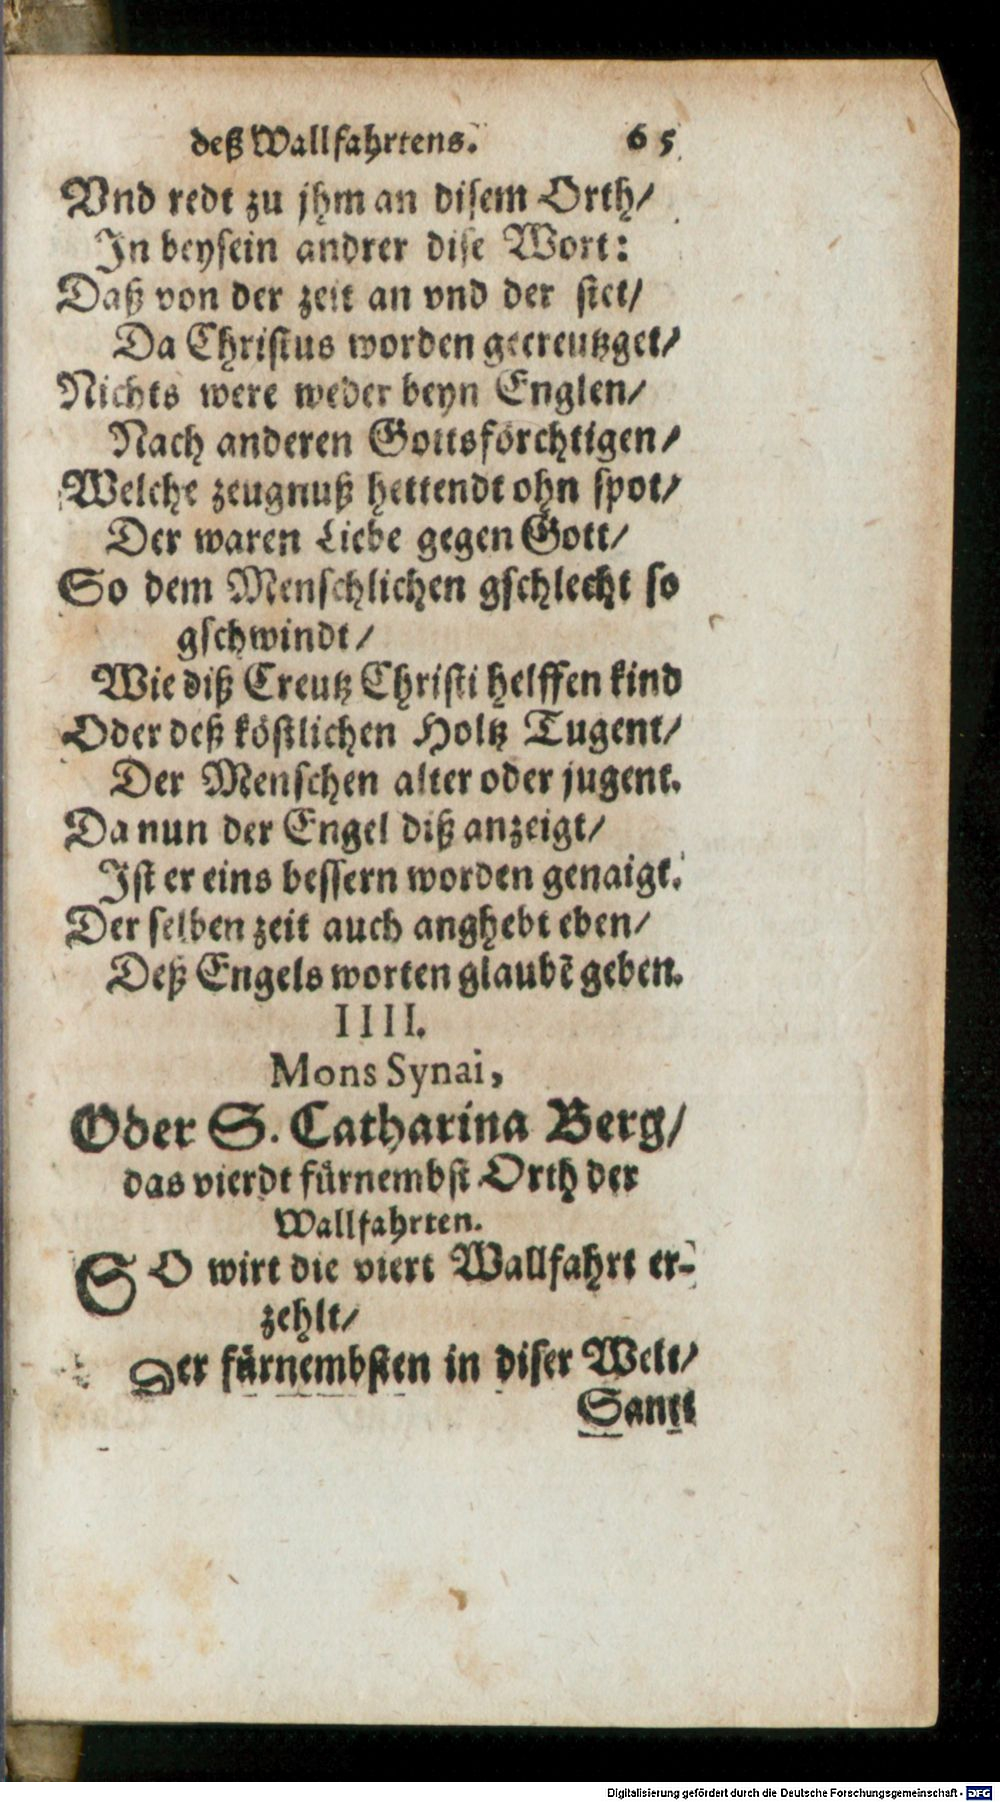 deß Wallfahrtens. 65
Vnd redt zu jhm an disem Orth/
In beysein andrer dise Wort:
Daß von der zeit an vnd der stet/
Da Christus worden gecreutzget/
Nichts were weder beyn Englen/
Nach anderen Gottsförchtigen/
Welche zeugnuß hettendt ohn spot/
Der waren Liebe gegen Gott/
So dem Menschlichen gschlecht so
gschwindt/
Wie diß Creutz Christi helffen kind
Oder deß köstlichen Holtz Tugent/
Der Menschen alter oder jugent.
Da nun der Engel diß anzeigt/
Ist er eins bessern worden genaigt.
Der selben zeit auch anghebt eben/
Deß Engels worten glaubẽ geben.
IIII.
Mons Synai,
Oder S. Catharina Berg/
das vierdt fürnembst Orth der
Wallfahrten.
SO wirt die viert Wallfahrt er-
zehlt/
Der fürnembsten in diser Welt/
Sant
Digitalisierung gefördert durch die Deutsche Forschungsgemeinschaft - DFG